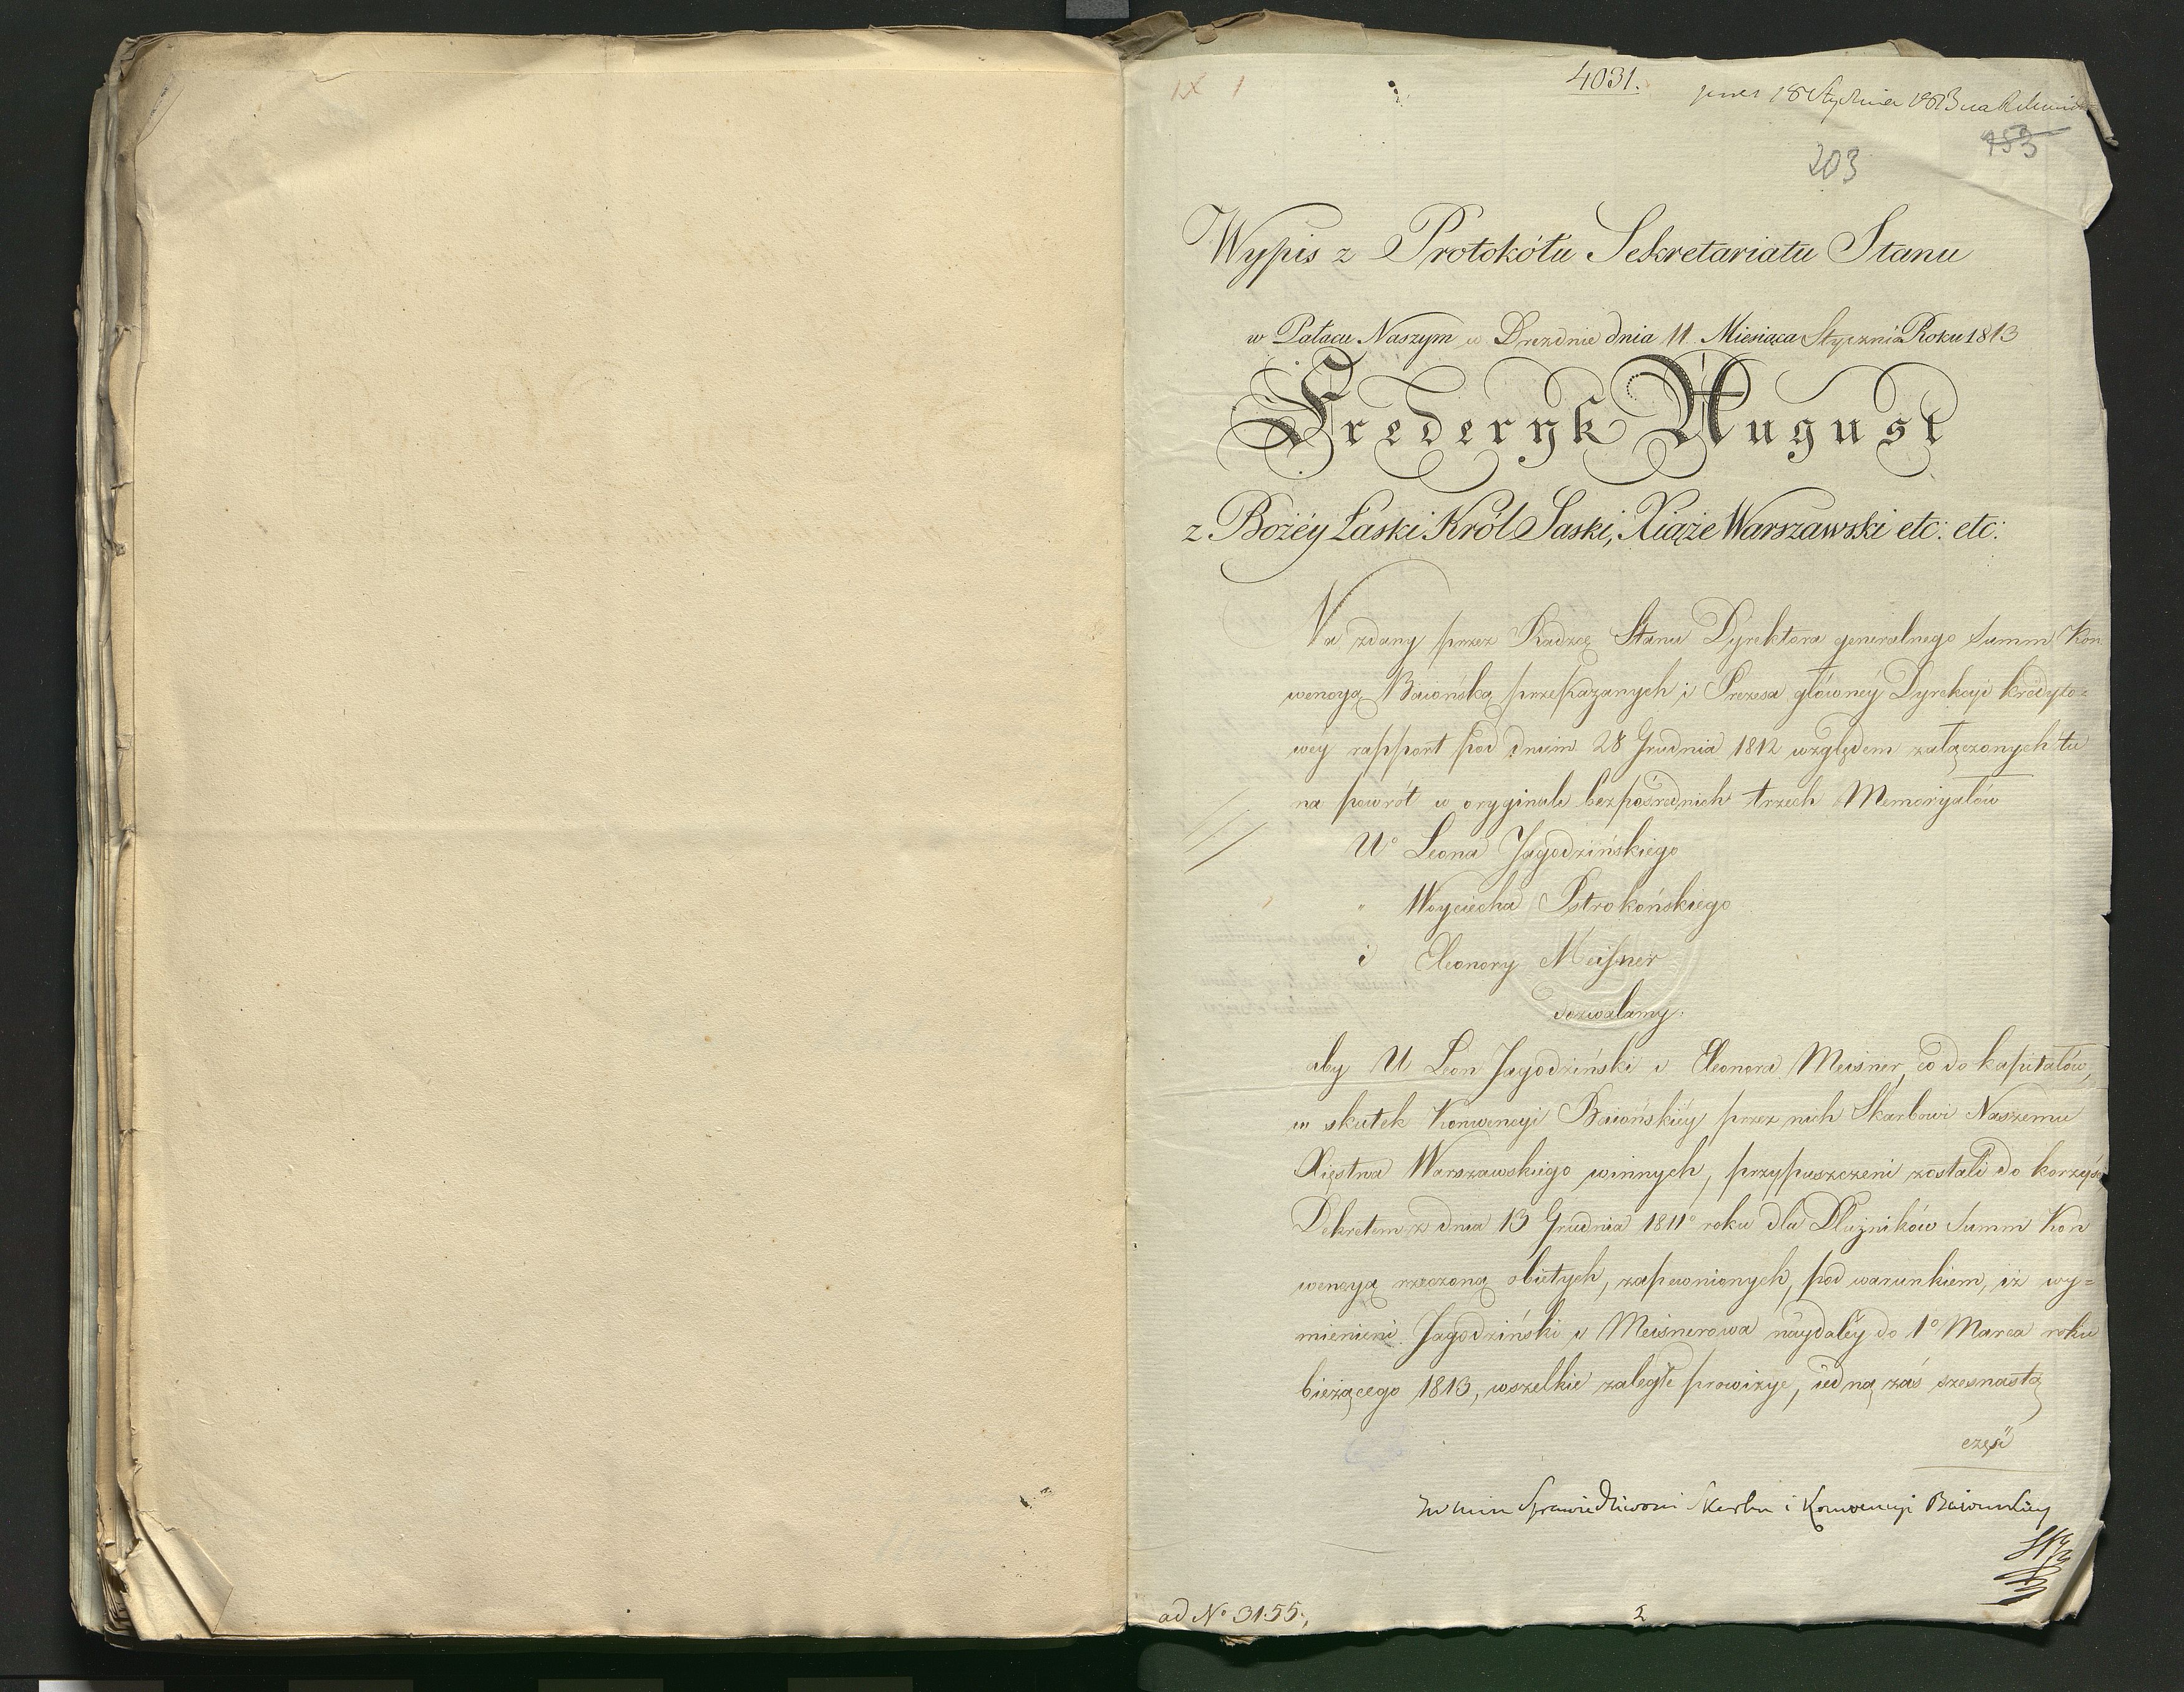 IX 1
4031.
18 Stycznia 1813 na
153
203
Wypis z Protokółu Sekretariatu Stanu
w Pałacu Naszym w Dreznie dnia 11 Miesiąca Stycznia Roku 1813
Frederyk August
z Bożéy Łaski Król Saski, Xiąże Warszawski etc: etc:
Na zdany przez Radzcę Stanu Dyrektora generalnego Summ Kon
wencyą Baiońską przekazanych i Prezesa główney Dyrekcyi kredyto=
wéy rapport pod dniem 28 Grudnia 1812 względem załączonych tu
na powrót w oryginale bezpośrednich trzech Memoryałów
Uº Leona Jagodzińskiego
" Woyciecha Pstrokońskiego
i Eleonory Meißner
dozwalamy,
aby U Leon Jagodziński i Eleonora Meisner, co do kapitałów,
w skutek Konwencyi Baiońskiéy przez nich Skarbowi Naszemu
Xięstwa Warszawskiego winnych, przypuszczeni zostali do korzyść
Dekretem z dnia 13 Grudnia 1811º roku dla Dłużników Summ Kon
wencyą rzeczoną obiętych, zapewnionych, pod warunkiem, iż wy=
mienieni Jagodziński i Meisnerowa naydaléy do 1º Marca roku
bieżącego 1813, wszelkie zaległe prowizye, iedną zaś szesnastą
część
Do Min Sprawiedliwości Skarbu i Konwencyi Baiońskiey
ad Nº 3155.,
2